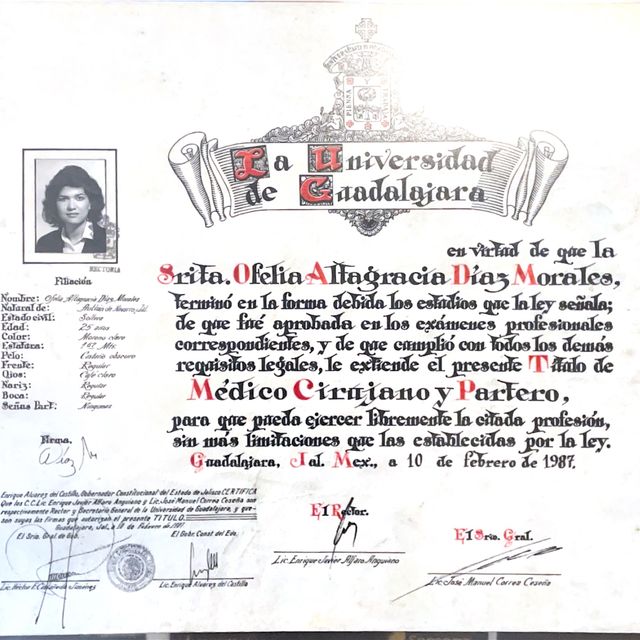 PIENSA
TRABAJA
La Universidad
de Guadalajara
en virtud de que la
Srita. Ofelia Altagracia Díaz Morales,
terminó en la forma debida los estudios que la ley señala;
de que fué aprobada en los exámenes profesionales
correspondientes, y de que cumplió con todos los demás
requisitos legales, le extiende el presente Título de
Médico Cirujano y Partero,
para que pueda ejercer libremente la citada profesión,
sin más limitaciones que las establecidas por la ley.
Guadalajara, Jal. Mex., a 10 de febrero de 1987.
RECTORIA
Filiación
Nombre: Ofelia Altagracia Díaz Morales
Natural de: Jal.
Estado civil: Soltera
Edad: 25 años
Color: Moreno claro
Estatura: Mts.
Pelo: Castaño obscuro
Frente: Regular
Ojos: Café claro
Nariz: Regular
Boca: Regular
Señas Part. Ningunas
Firma.
Enrique Alvarez del Castillo, Gobernador Constitucional del Estado de Jalisco CERTIFICA
Que los C.C. Lic. Enrique Javier Alfaro Anguiano y Lic. José Manuel Correa Ceseña son
respectivamente Rector y Secretario General de la Universidad de Guadalajara, y que
son suyas las firmas que autorizan el presente TITULO.
Guadalajara, Jal., a 10 de Febrero de 1987
El Srio. Gral. de Gob.
El Gobr. Const. del Edo.
Lic. Enrique Alvarez del Castillo
El Rector.
Lic. Enrique Javier Alfaro Anguiano
El Srio. Gral.
Lic. José Manuel Correa Ceseña